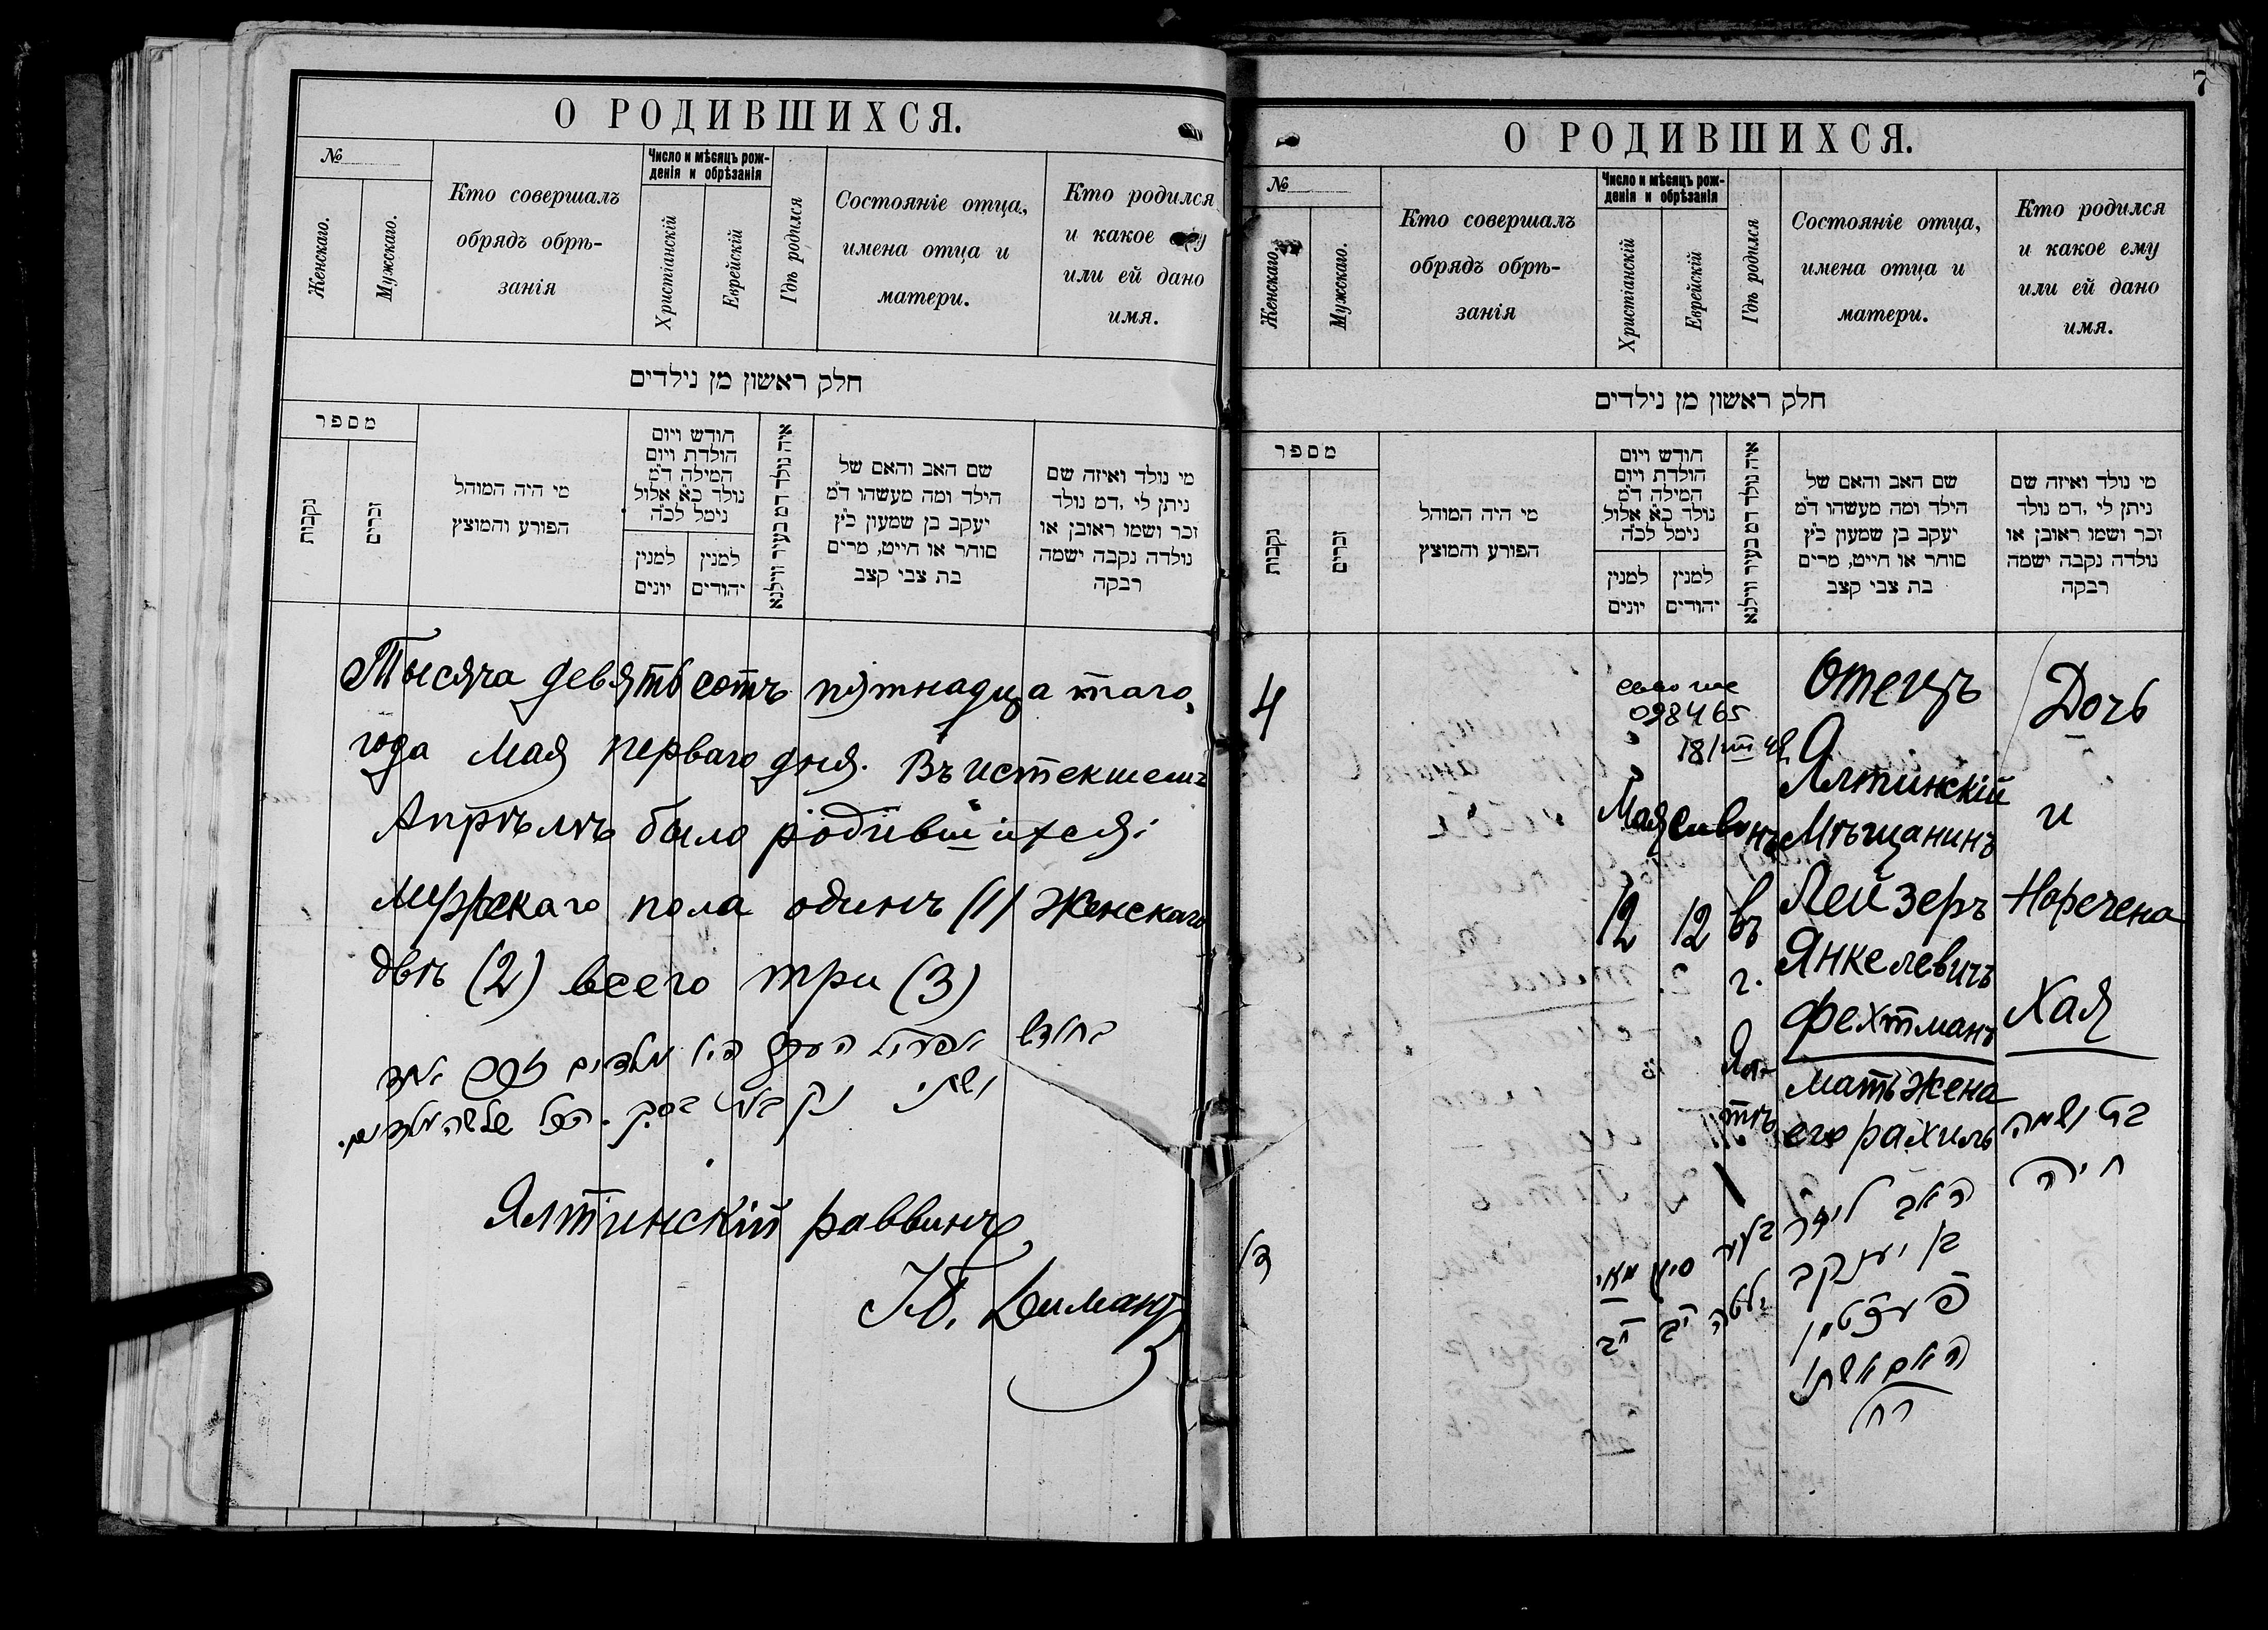 О РОДИВШИХСЯ.
№
Женскаго.
Мужскаго.
Кто совершалъ
обрядъ обрѣ-
занія
Число и мѣсяцъ рож-
денія и обрѣзанія
Христіанскій
Еврейскій
Гдѣ родился
Состояніе отца,
имена отца и
матери.
Кто родился
и какое
или ей дано
имя.
חלק ראשון מן נילדים
מספר
נקבות
זכרים
מי היה המוהל
הפורע והמוצץ
חודש ויום
הולדת ויום
המילה ד"מ
נולד כא אלול
נימל לכ"ה
למנין
יונים
למנין
יהודים
איה נולד דמ בעיר ווילנא
שם האב והאם של
הילד ומה מעשהו ד"מ
יעקב בן שמעון כ"ץ
סוחר או חייט, מרים
בת צבי קצב
מי נולד ואיזה שם
ניתן לי ,דמ נולד
זכר ושמו ראובן או
נולדה נקבה ישמה
רבקה
Тысяча девятьсотъ пятнадцатаго
года Мая перваго дня. Въ истекшемъ
Апрѣлѣ было родившихся:
мужскаго пола одинъ (1) женскаго
двѣ (2) всего три (3)
בחודש אפריל העבר היו נולדים זכרים אחד
ושתי נקבות הכל שלשה נולדים.
Ялтинскій раввинъ
7
О РОДИВШИХСЯ.
№
Женскаго.
Мужскаго.
Кто совершалъ
обрядъ обрѣ-
занія
Число и мѣсяцъ рож-
денія и обрѣзанія
Христіанскій
Еврейскій
Гдѣ родился
Состояніе отца,
имена отца и
матери.
Кто родился
и какое ему
или ей дано
имя.
חלק ראשון מן נילדים
מספר
נקבות
זכרים
מי היה המוהל
הפורע והמוצץ
חודש ויום
הולדת ויום
המילה ד"מ
נולד כא אלול
נימל לכ"ה
למנין
יונים
למנין
יהודים
איה נולד דמ בעיר ווילנא
שם האב והאם של
הילד ומה מעשהו ד"מ
יעקב בן שמעון כ"ץ
סוחר או חייט, מרים
בת צבי קצב
מי נולד ואיזה שם
ניתן לי ,דמ נולד
זכר ושמו ראובן או
נולדה נקבה ישמה
רבקה
4
098465
Мая
12
Сивонъ
12
въ
г.
Ял
тѣ
Отецъ
Ялтинскій
Мѣщанинъ
Лейзеръ
Янкелевичъ
Фехтманъ
мать жена
его рахиль
Дочь
и
Наречена
Хая
ד
מאי
י"ב
סיון
י"ב
בעיר
ילטה
האב ליזר
בן יעקב
פעכטמן
האם אשתו
רחל
בת ושמה
חיה